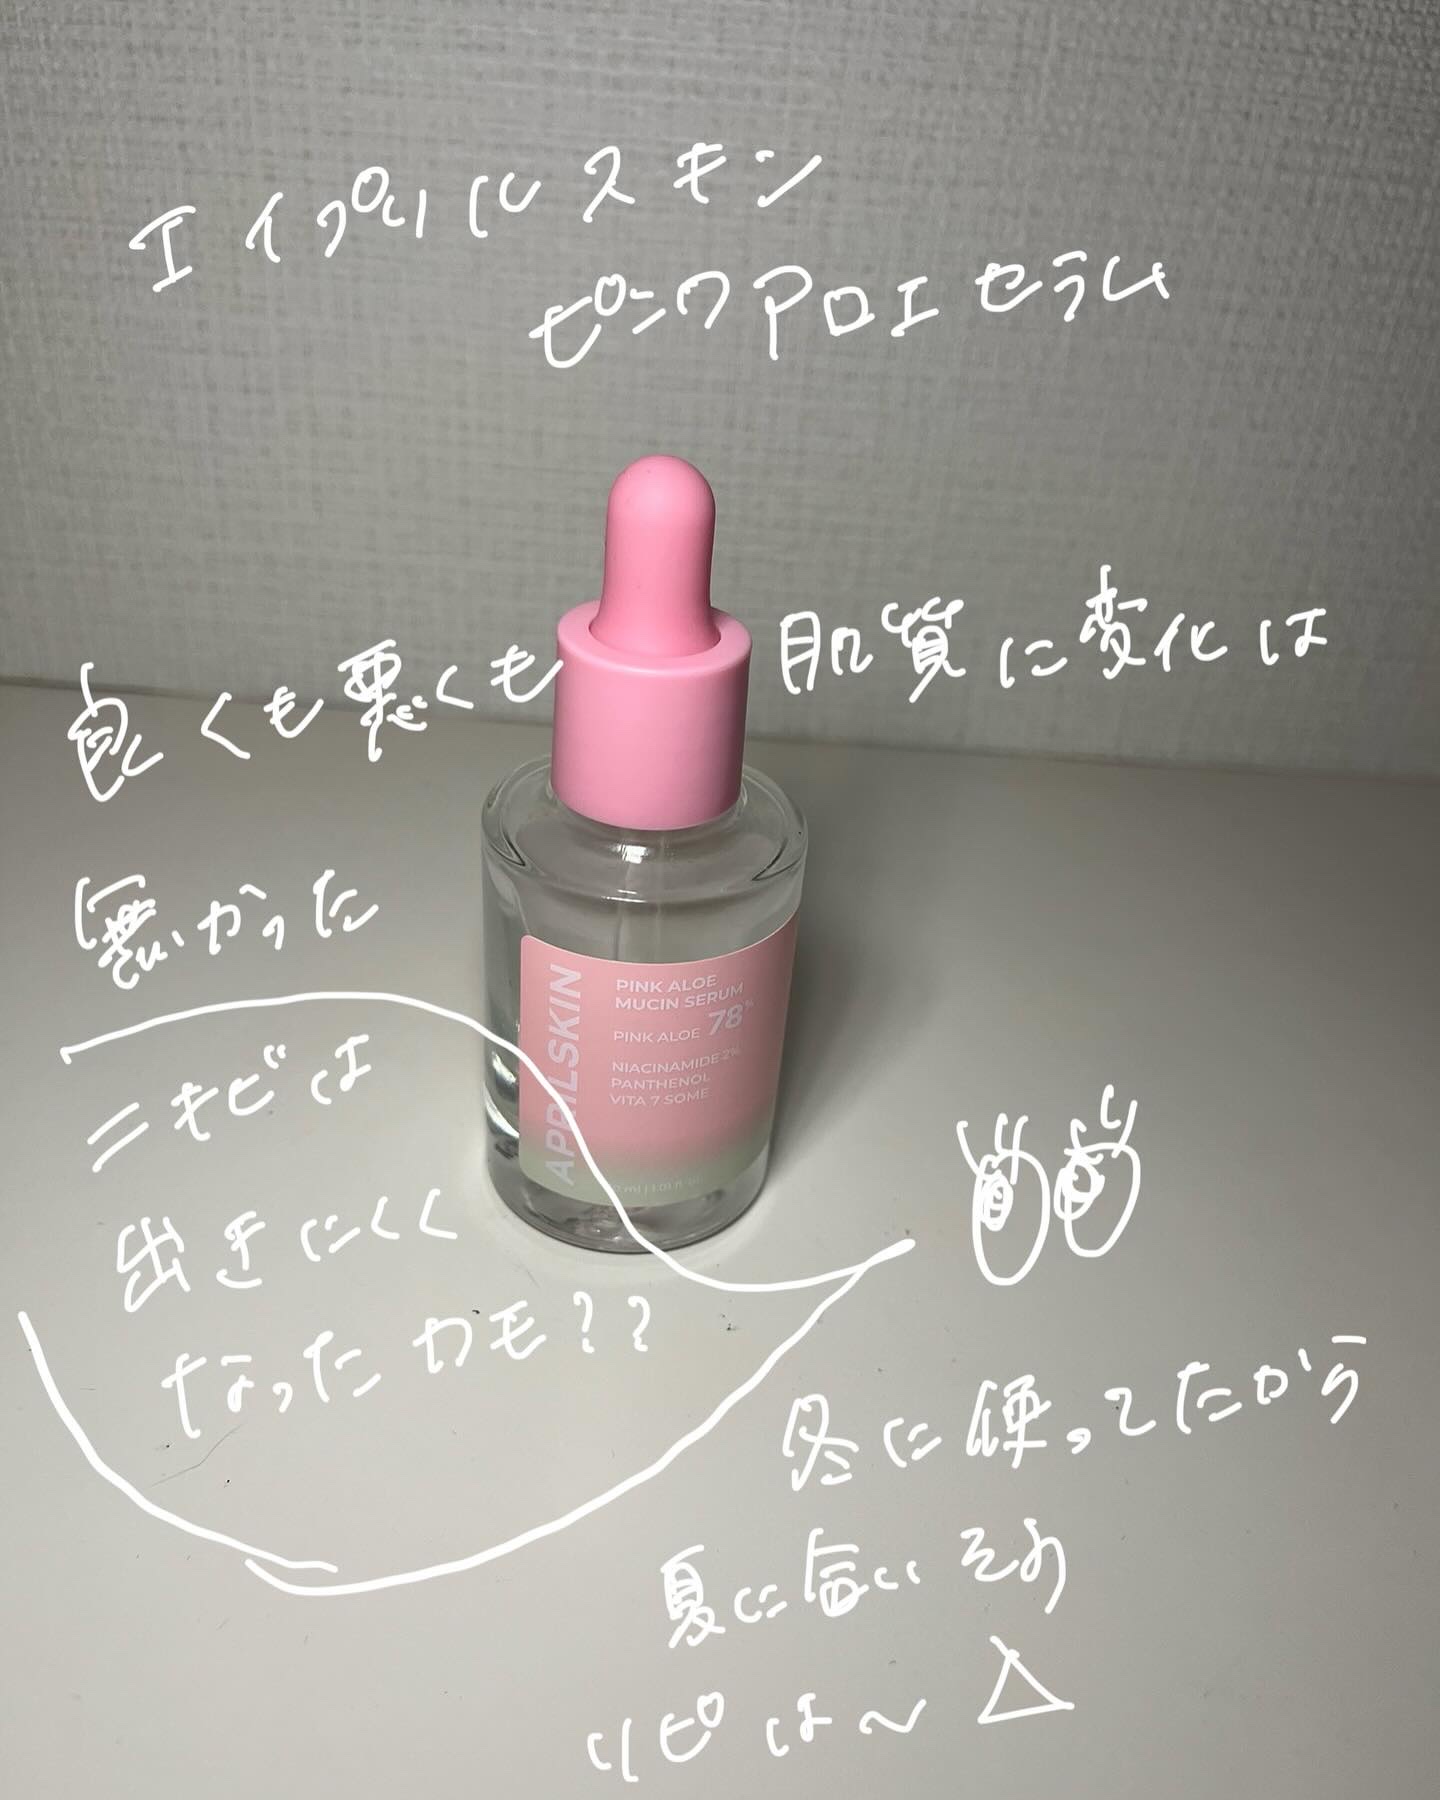 エイプリルスキン
ピンクアロエセラム
良くも悪くも 肌質に変化は
無かった
ニキビは
出きにくく
なったカモ??
冬に使ってたから
夏に合いそう
リピは～△
APRILSKIN
PINK ALOE
MUCIN SERUM
PINK ALOE 78%
NIACINAMIDE 2%
PANTHENOL
VITA 7 SOME
ml | 1.01 fl